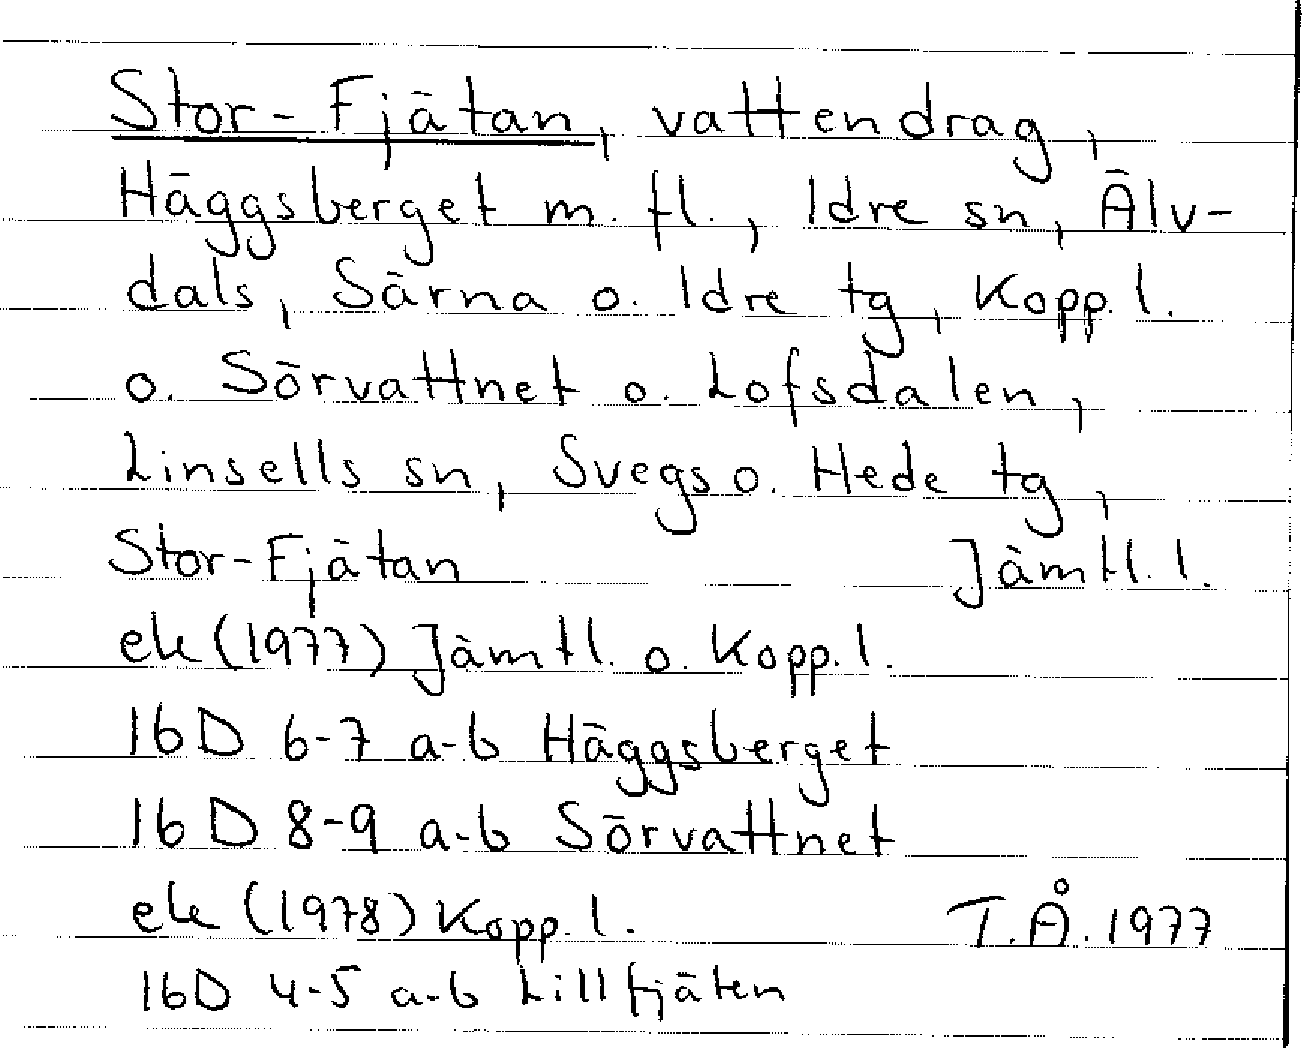 Stor-Fjätan, vattendrag,
Häggsberget m.fl., Idre sn, Älv-
dals, Särna o. Idre tg, Kopp.l.
o. Sörvattnet o. Lofsdalen,
Linsells sn, Svegs o. Hede tg,
Stor-Fjätan Jämtl.l.
ek (1977) Jämtl. o. Kopp.l.
16D 6-7 a-b Häggsberget
16D 8-9 a-b Sörvattnet
ek (1978) Kopp.l. T.Å. 1977
16D 4-5 a-b Lillfjäten